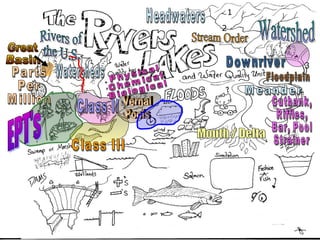 The Rivers & Lakes
and Water Quality Unit
Headwaters
Stream Order
1
2
Watershed
Rivers of
the U.S.
Great
Basin
Parts
Per
Million
Watersheds
Physical
Chemical
Biological
Downriver
Floodplain
Meander
Class I
Vernal
Pools
FLOODS
Cutbank,
Riffles,
Bar, Pool
Strainer
EPT's
Class III
Mouth / Delta
Swamp or Marsh
Wetlands
DAMS
+'s
-'s
Salmon
Simulation
Fashion
a
Fish